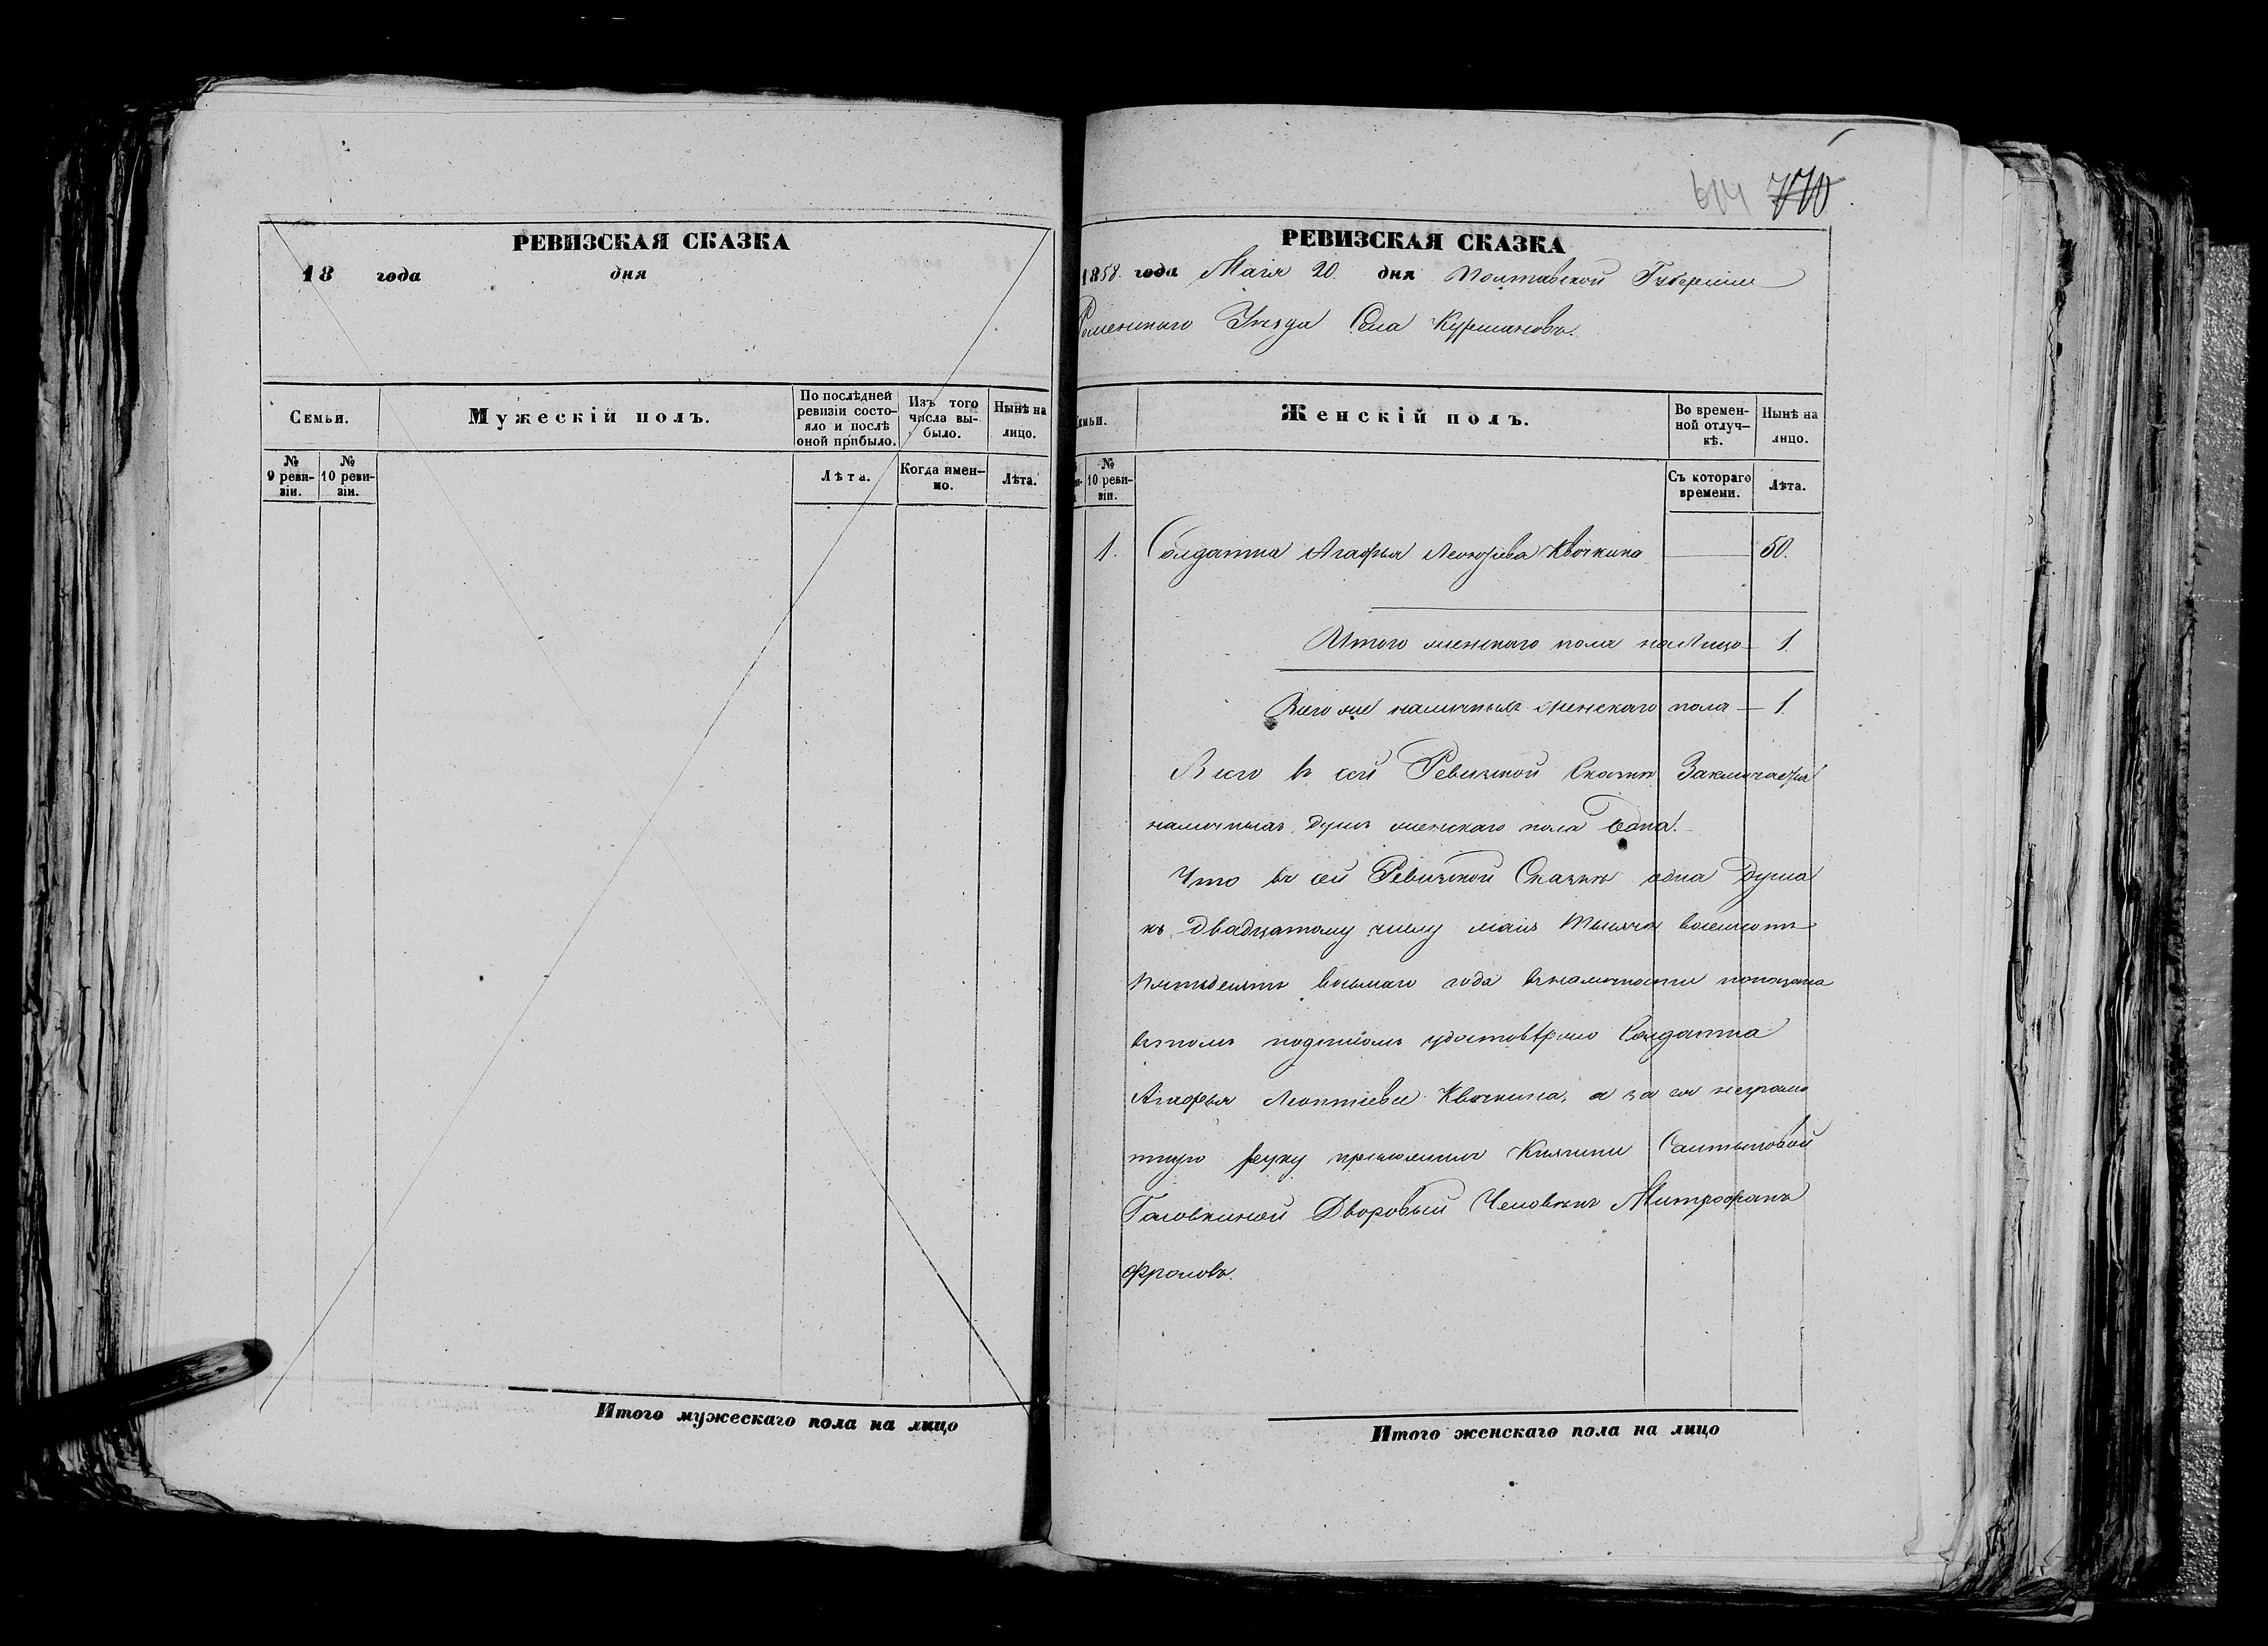 РЕВИЗСКАЯ СКАЗКА
18 года дня
Семьи.
Мужескій полъ.
По послѣдней
ревизіи состо-
яло и послѣ
оной прибыло.
Изъ того
числа вы-
было.
Нынѣ на
лицо.
№
9 реви-
зіи.
№
10 реви-
зіи.
Лѣта.
Когда имен-
но.
Лѣта.
Итого мужескаго пола на лицо
614 770
РЕВИЗСКАЯ СКАЗКА
1858. года Маія 20. дня Полтавской Губерніи
Роменскаго Уезда Села Курмановъ.
Женскій полъ.
Во времен-
ной отлуч-
кѣ.
Нынѣ на
лицо.
№
10 реви-
зіи.
Съ котораго
времени.
Лѣта.
1. Солдатка Агафья Леонтіева Квочкина 50.
Итого женскаго пола на Лицо 1.
Всего же наличныхъ женскаго пола 1.
Всего въ сей Ревизской Сказкѣ Заключается
наличныхъ душъ женскаго пола Одна.
Что въ сей Ревизской Сказкѣ одна Душа
къ двадцатому числу маія тысяча восемсотъ
пятьдесятъ восьмаго года въ наличности показана
въ томъ подписомъ удостовѣряю Солдатка
Агафья Леонтіева Квочкина, а за ея неграмо
тную руку приложилъ Княгини Салтыковой
Головкиной Дворовый Человѣкъ Митрофанъ
Фроловъ.
Итого женскаго пола на лицо